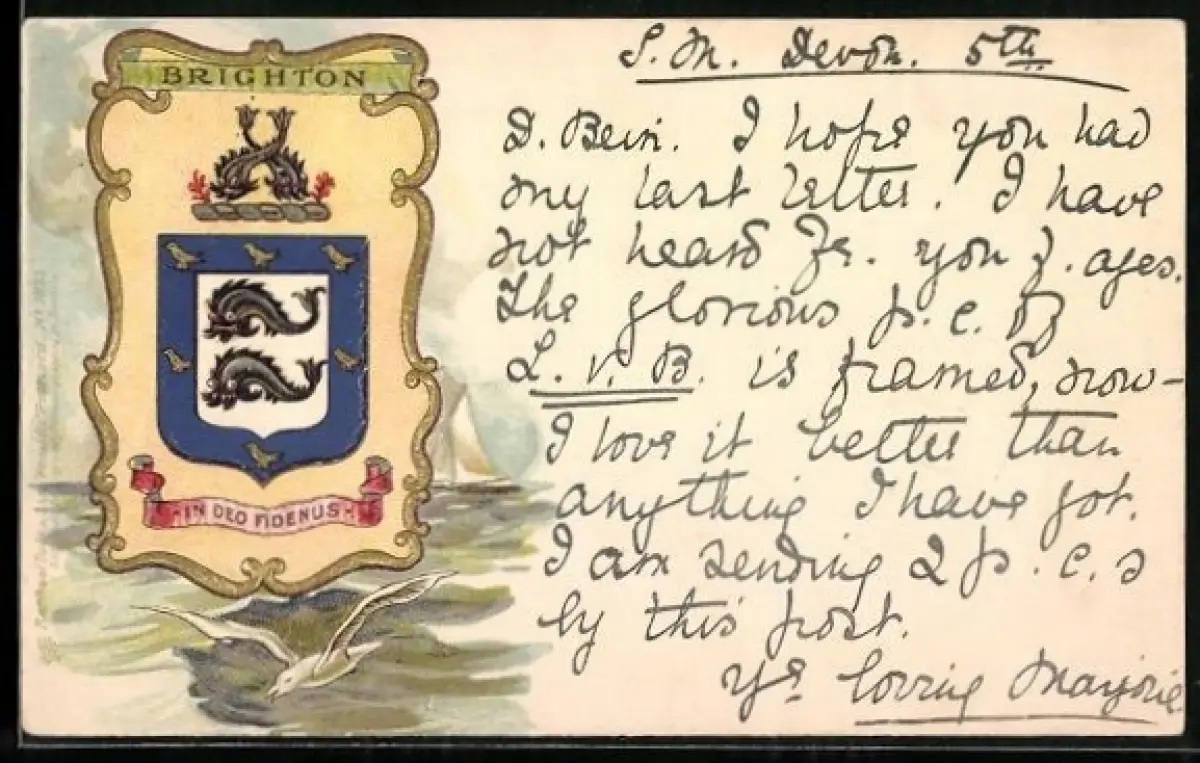 BRIGHTON
IN DEO FIDEMUS
S. M. Devon. 5th
I hope you had
my last letter. I have
not heard fr. you f. ages.
The glorious p. c. of
L. v. B. is framed, now—
I love it better than
anything I have got.
I am sending 2 p. c. s
by this post.
Yr loving Marjorie